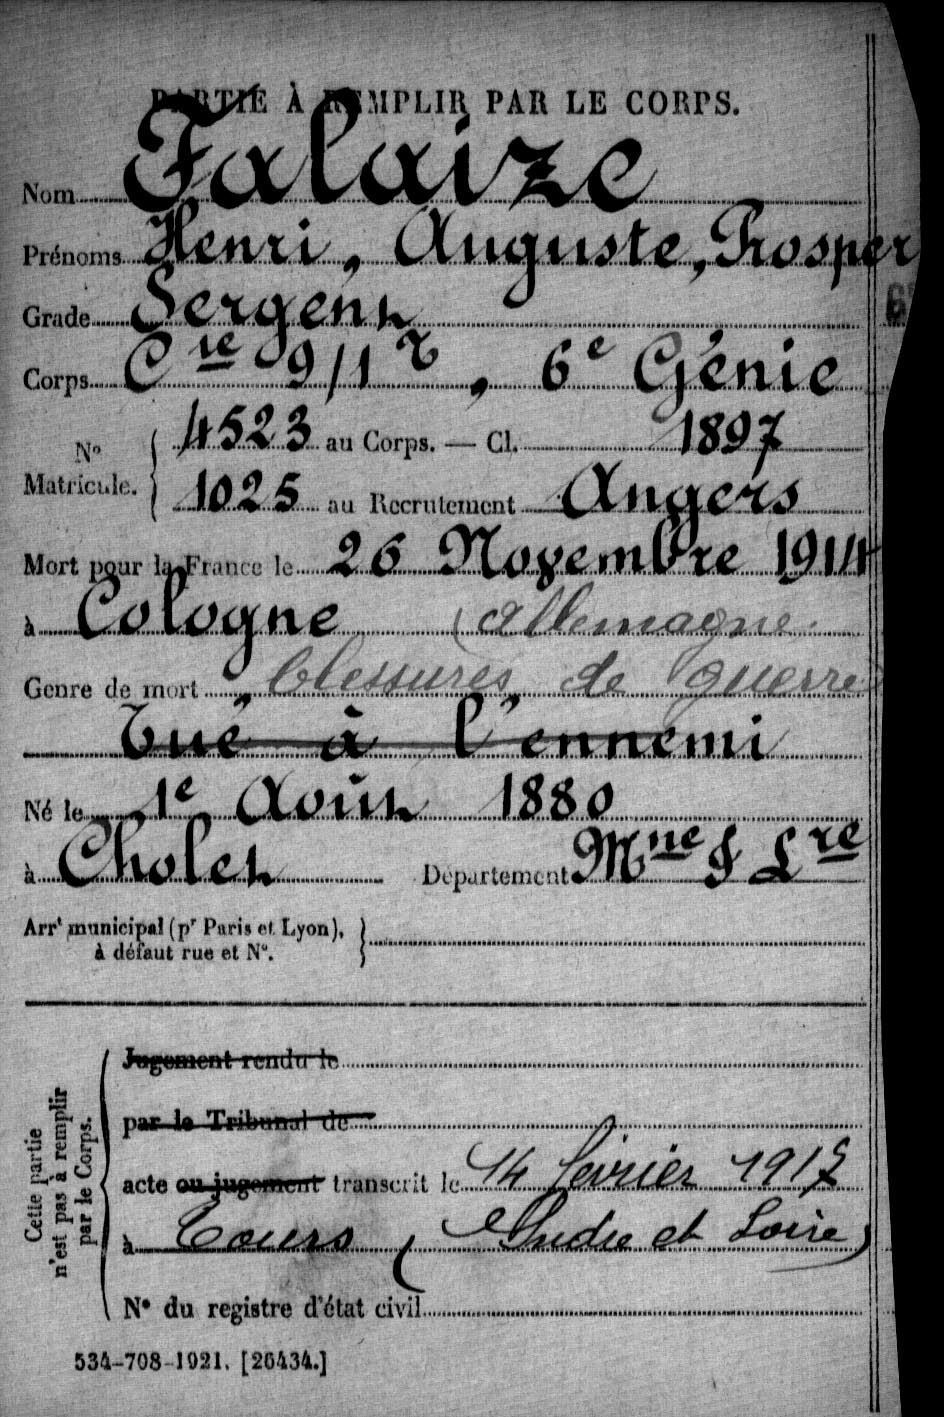 PARTIE À REMPLIR PAR LE CORPS.
Nom Falaize
Prénoms Henri, Auguste, Prosper
Grade Sergent
Corps Cie 9/1 T, 6e Génie
No Matricule. { 4523 au Corps. — Cl. 1897
1025 au Recrutement Angers
Mort pour la France le 26 Novembre 1914
à Cologne (Allemagne
Genre de mort blessures de guerre
Tué à l'ennemi
Né le 1e Août 1880
à Cholet Département Mne & Lre
Arrt municipal (pr Paris et Lyon), à défaut rue et No. }
Cette partie n'est pas à remplir par le Corps.
Jugement rendu le
par le Tribunal de
acte ou jugement transcrit le 14 février 191
à Tours (Indre et Loire)
No du registre d'état civil
534-708-1921. [26434.]